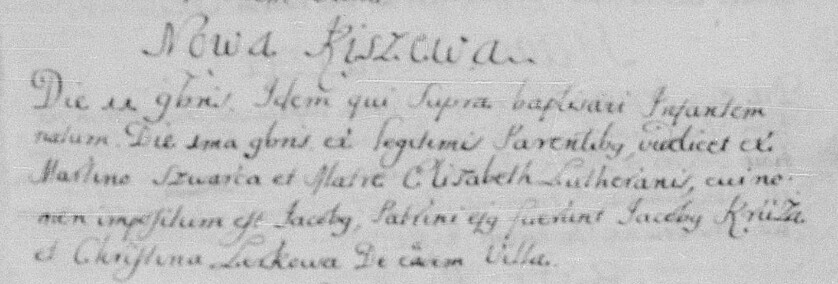 Nowa Kiszewa
Die 11 9bris. Idem qui Supra baptisavi Infantem
natum Die 1ma 9bris ex legitimis Parentibq videlicet ex
Martino Szwarca et Matre Elisabeth Lutheranis, cui no-
men impositum est Jacobq, Patrini ejq fuerunt Jacobq Krüza
et Christina Leskowa De eadem Villa.